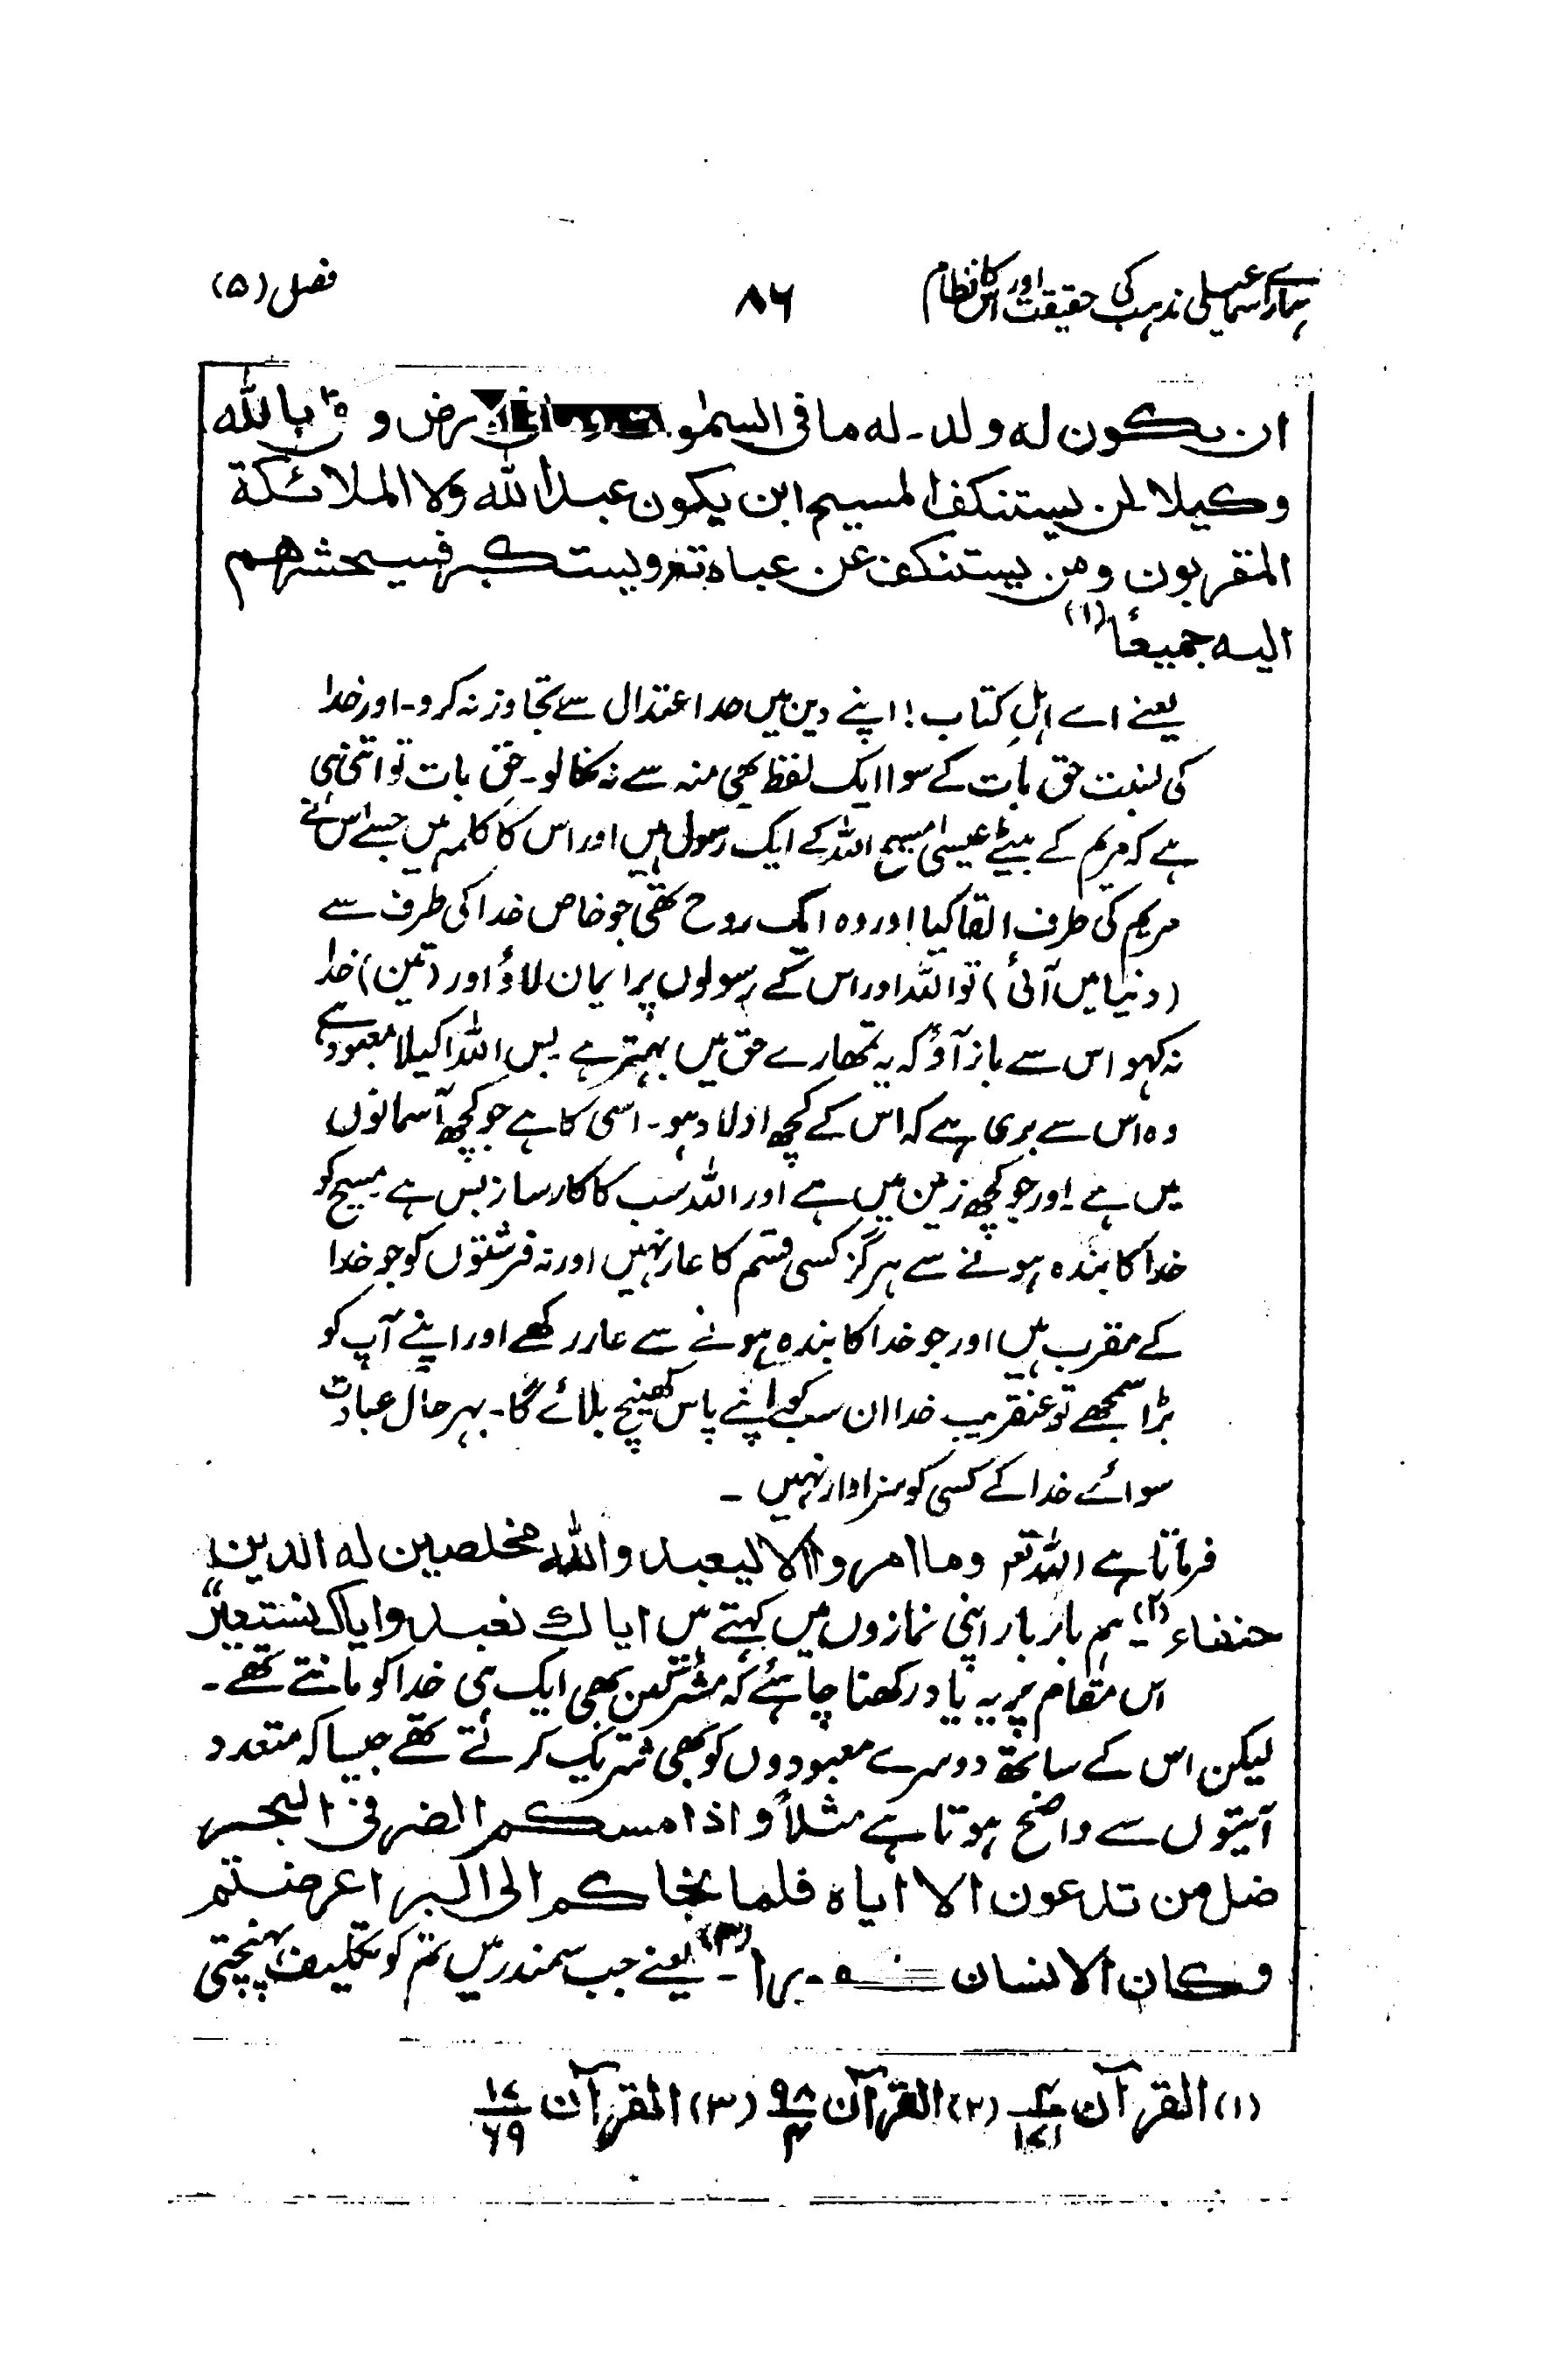 ہمارے اسماعیلی مذہب کی حقیقت اور اس کا نظام ۸۶ فصل (۵)
ان یکون له ولد۔ له ما فی السمٰو رض و بالله
وکیلا لن یستنکف المسیح ابن یکون عبد الله ولا الملائکة
المقربون ومن یستنکف عن عبادته ویستکبر فسیحشرهم
الیه جمیعاً (۱)
یعنے اے اہلِ کتاب! اپنے دین میں حد اعتدال سے تجاوز نہ کرو۔ اور خدا
کی نسبت حق بات کے سوا ایک لفظ بھی منہ سے نہ نکالو۔ حق بات تو اتنی ہی
ہے کہ مریم کے بیٹے عیسیٰ مسیح اللہ کے ایک رسول ہیں اور اس کا کلمہ ہیں جسے اس نے
مریم کی طرف القا کیا اور وہ ایک روح تھی جو خاص خدا کی طرف سے
(دنیا میں آئی) تو اللہ اور اس کے رسولوں پر ایمان لاؤ اور (تین) خدا
نہ کہو اس سے باز آؤ کہ یہ تمھارے حق میں بہتر ہے بس اللہ اکیلا معبود ہے
وہ اس سے بری ہے کہ اس کے کچھ اولاد ہو۔ اسی کا ہے جو کچھ آسمانوں
میں ہے۔ اور جو کچھ زمین میں ہے اور اللہ سب کا کارساز بس ہے مسیح کو
خدا کا بندہ ہونے سے ہرگز کسی قسم کا عار نہیں اور نہ فرشتوں کو جو خدا
کے مقرب ہیں اور جو خدا کا بندہ ہونے سے عار رکھے اور اپنے آپ کو
بڑا سمجھے تو عنقریب خدا ان سب کو اپنے پاس کھینچ بلائے گا۔ بہر حال عبادت
سوائے خدا کے کسی کو سزاوار نہیں ۔
فرماتا ہے اللہ تعہ وما امروا الا لیعبدوا الله مخلصین له الدین
حنفاء (۲)۔ ہم بار بار اپنی نمازوں میں کہتے ہیں ایاك نعبد وایاك نستعین
اس مقام پر یہ یاد رکھنا چاہئے کہ مشرکین بھی ایک ہی خدا کو مانتے تھے۔
لیکن اس کے ساتھ دوسرے معبودوں کو بھی شریک کرتے تھے جیسا کہ متعدد
آیتوں سے واضح ہوتا ہے مثلاً واذا مسکم الضر فی البحر
ضل من تدعون الا ایاه فلما نجاکم الی البر اعرضتم
وکان الانسان ۔ (۳) یعنے جب سمندر میں تم کو تکلیف پہنچتی
(۱) القرآن ۴/۱۷۱ (۲) القرآن ۹۸/۴ (۳) القرآن ۱۷/۶۹